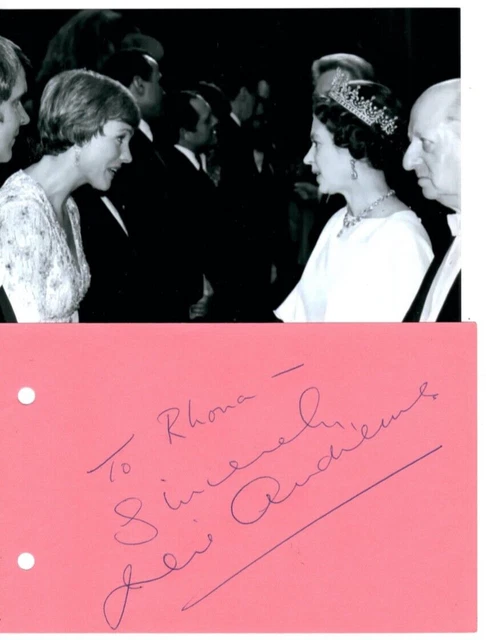 To Rhona —
Sincerely,
Julie Andrews